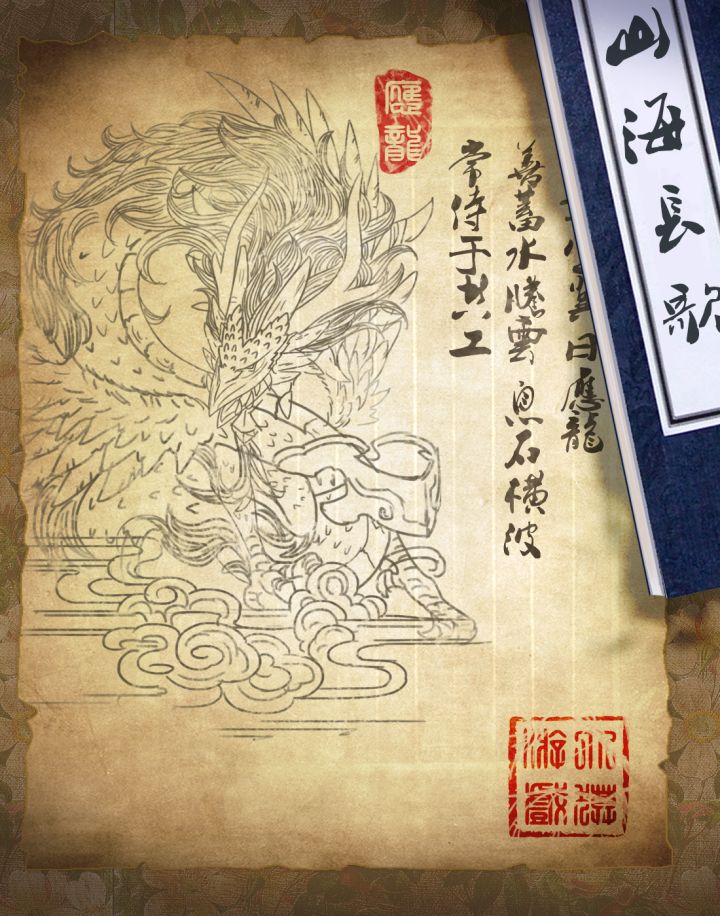 山海長歌
應龍
曰應龍
善蓄水騰雲 息石橫波
常侍于共工
游戲